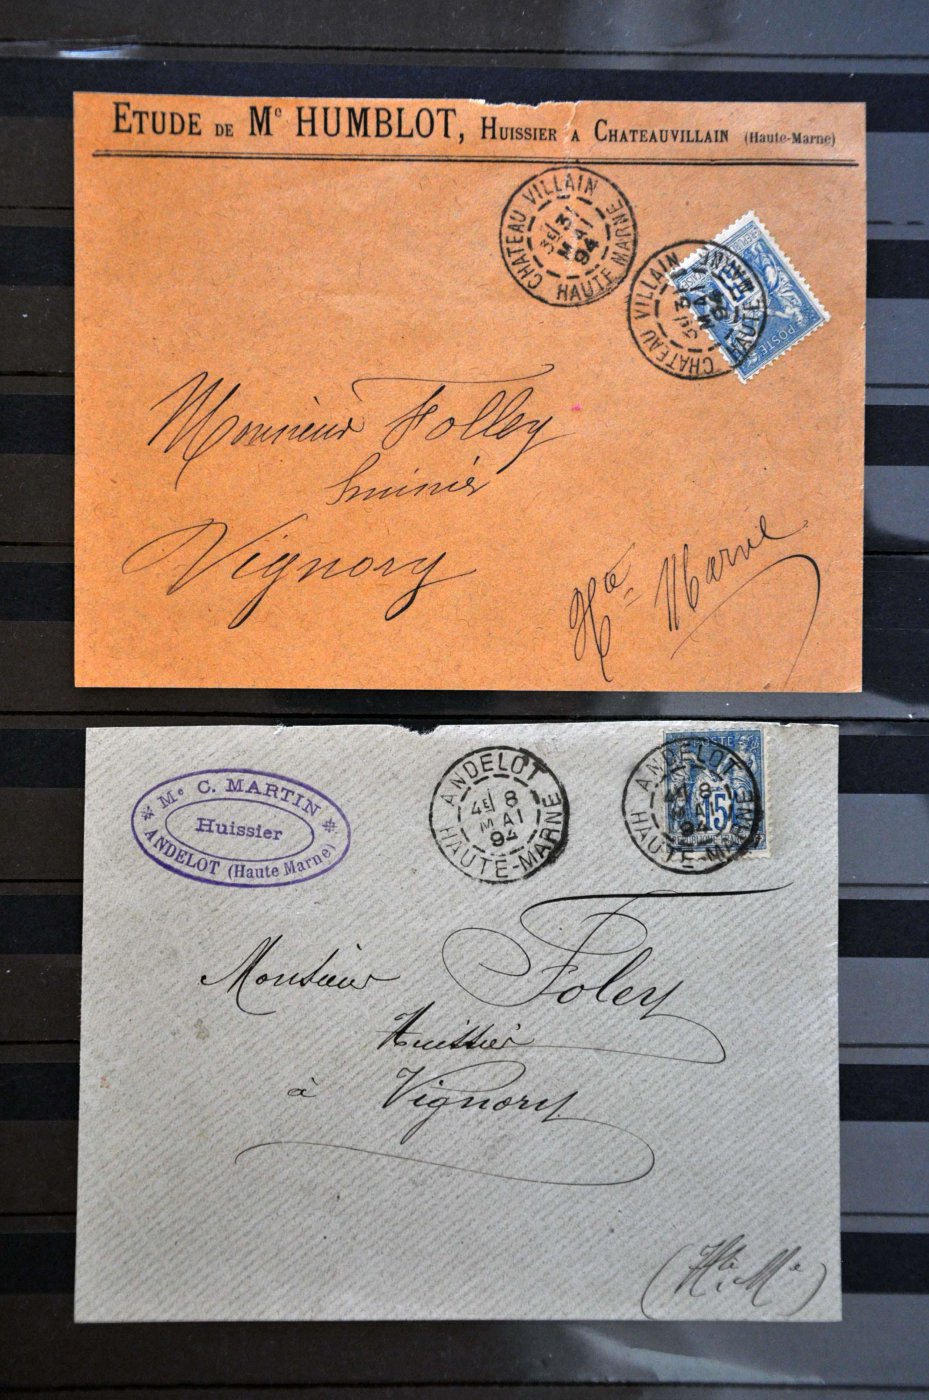 ETUDE DE Mᵉ HUMBLOT, HUISSIER A CHATEAUVILLAIN (Haute-Marne)
CHATEAU VILLAIN
3ᴱ/ 31
MAI
94
HAUTE MARNE
CHATEAU VILLAIN
3ᴱ/ 31
MAI
94
HAUTE MARNE
15
POSTE
Monsieur Folley
huissier
Vignory
Hᵗᵉ Marne
Mᵉ C. MARTIN
Huissier
ANDELOT (Haute Marne)
ANDELOT
4ᴱ/ 8
MAI
94
HAUTE-MARNE
ANDELOT
4ᴱ/ 8
MAI
94
HAUTE-MARNE
POSTE
15
Monsieur Foley
Huissier
à Vignory
(Hᵗᵉ Mᵉ)